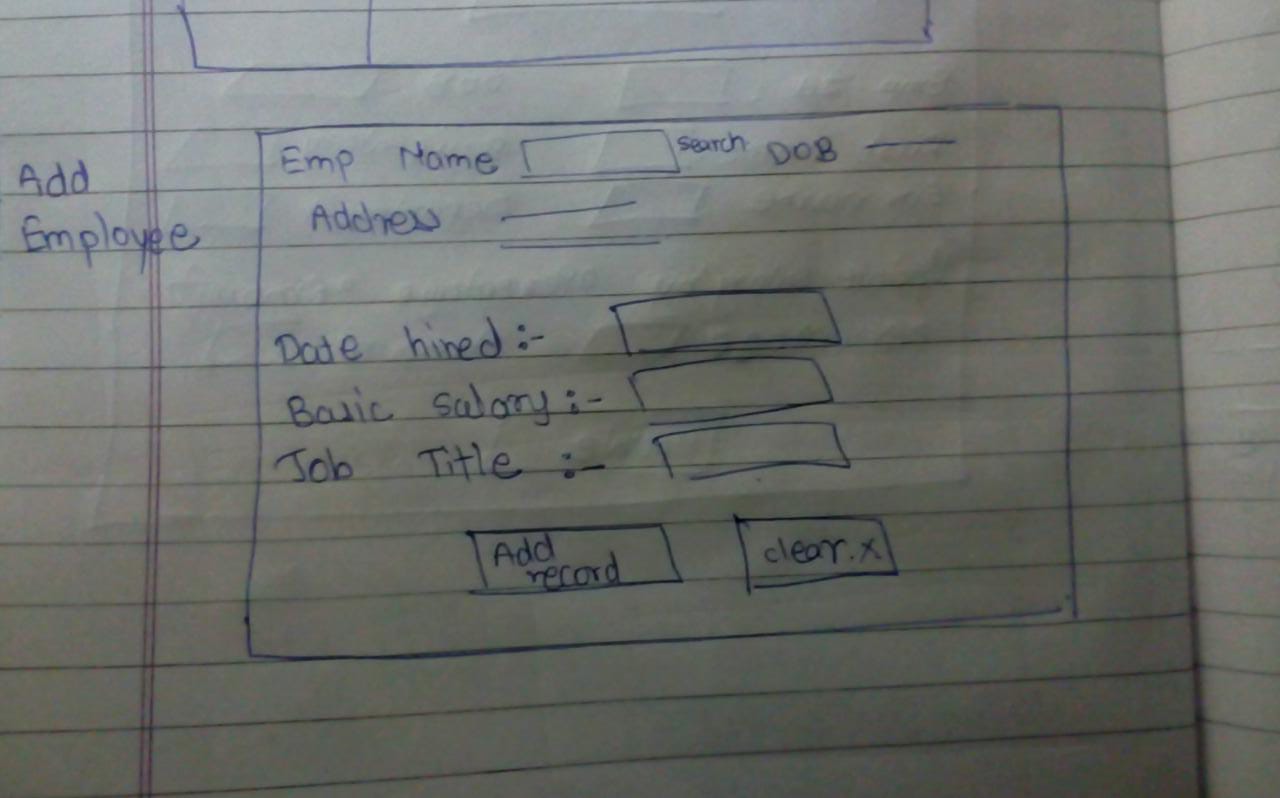 Add
Employee
Emp Name search DOB
Address
Date hired :-
Basic salary :-
Job Title :-
Add
record
clear.x